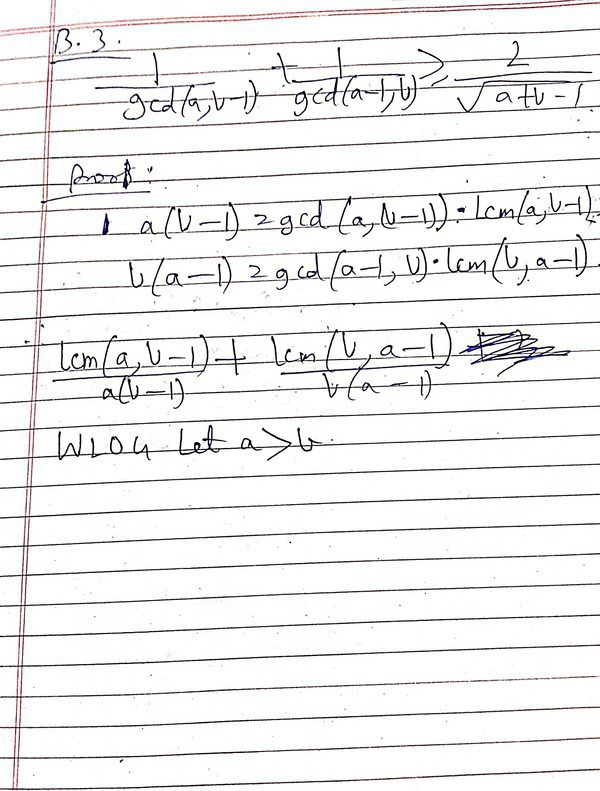 B.3.
1/gcd(a,b-1) + 1/gcd(a-1,b) ≥ 2/√(a+b-1)
Proof:
a(b-1) = gcd(a,(b-1))·lcm(a,b-1)
b(a-1) = gcd(a-1,b)·lcm(b,a-1).
lcm(a,b-1)/a(b-1) + lcm(b,a-1)/b(a-1)
WLOG Let a>b.